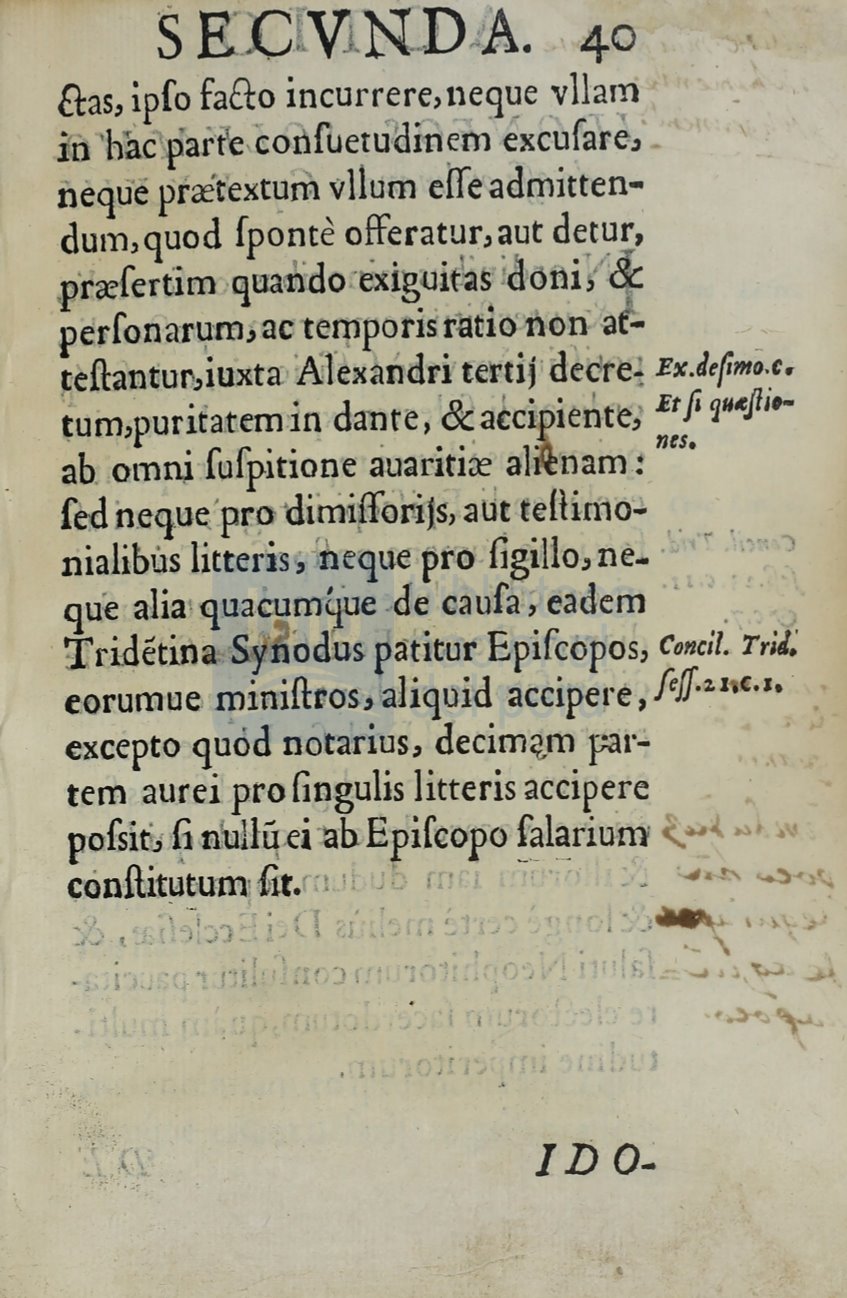 SECVNDA. 40
ctas, ipſo facto incurrere, neque vllam
in hac parte conſuetudinem excuſare,
neque prætextum vllum eſſe admitten-
dum, quod ſpontè offeratur, aut detur,
præſertim quando exiguitas doni, &
perſonarum, ac temporis ratio non at-
teſtantur, iuxta Alexandri tertij decre-
tum, puritatem in dante, & accipiente,
ab omni ſuſpitione auaritiæ alienam:
ſed neque pro dimiſſorijs, aut teſtimo-
nialibus litteris, neque pro ſigillo, ne-
que alia quacumque de cauſa, eadem
Tridẽtina Synodus patitur Epiſcopos,
eorumue miniſtros, aliquid accipere,
excepto quod notarius, decimam par-
tem aurei pro ſingulis litteris accipere
poſsit, ſi nullũ ei ab Epiſcopo ſalarium
conſtitutum ſit.
Ex. de ſimo. c.
Et ſi quæſtio-
nes.
Concil. Trid.
ſeſſ. 21. c. 1.
IDO-